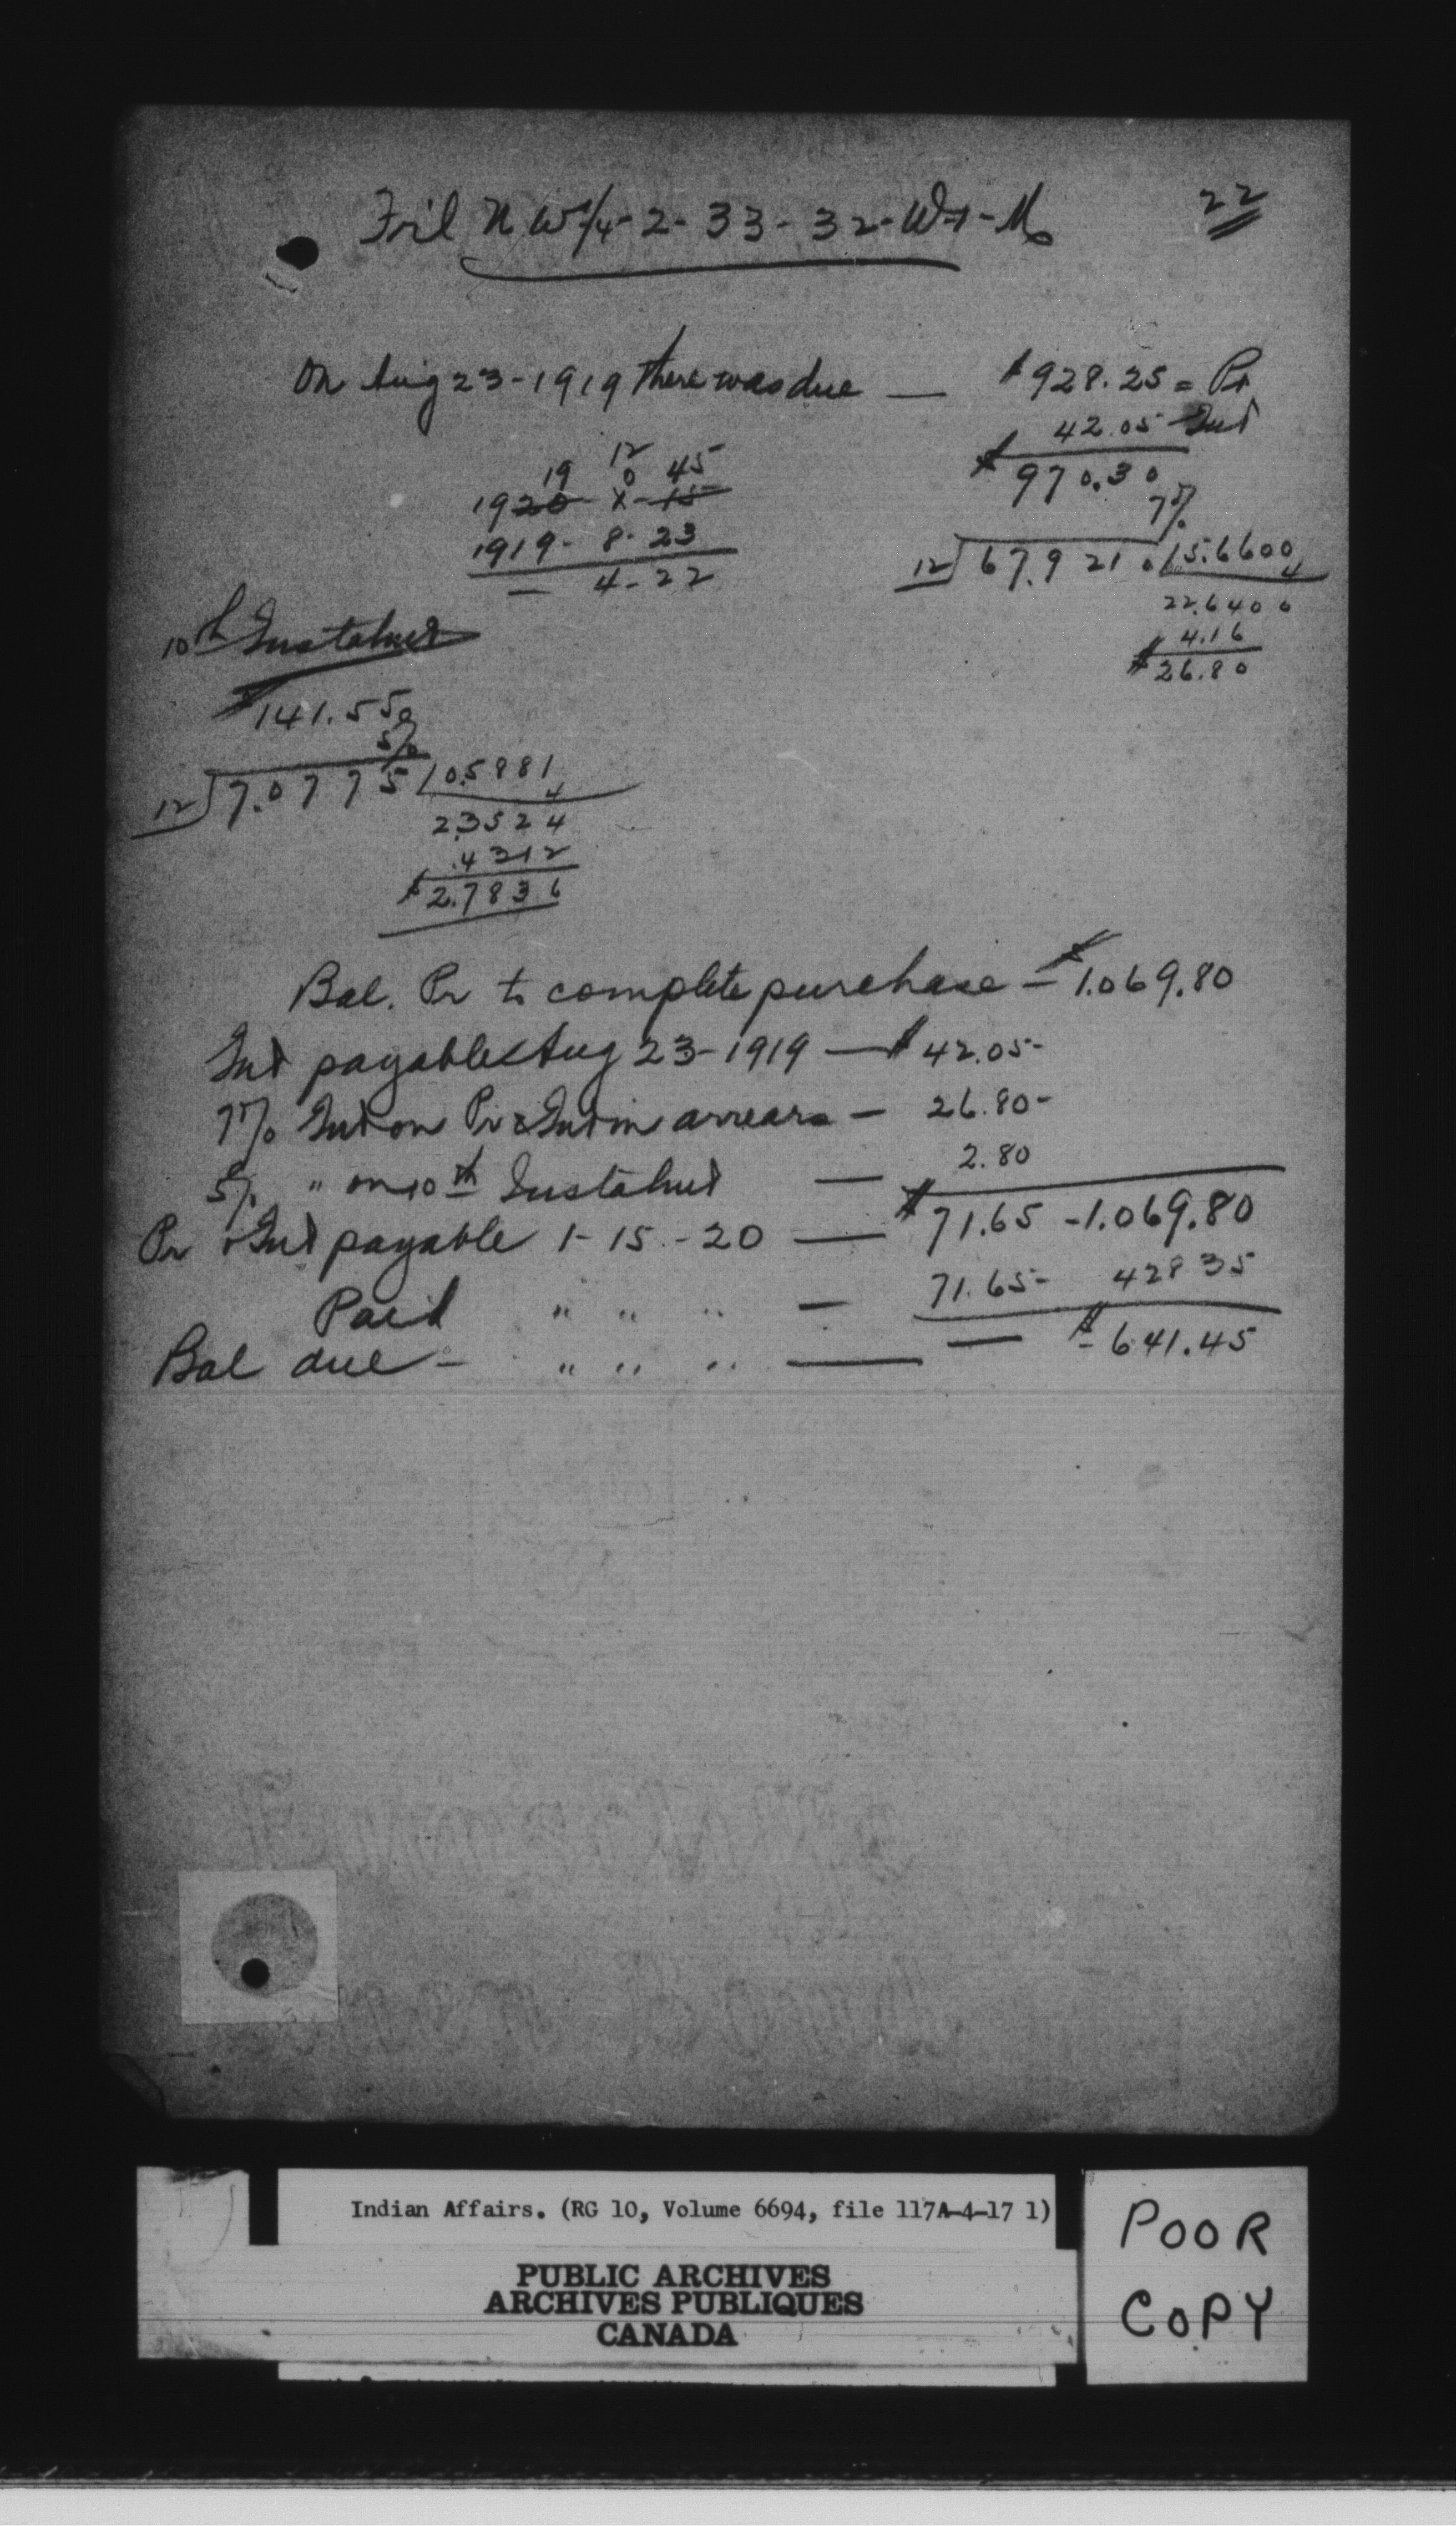 22
Frl N W 1/4 - 2 - 33 - 32 - W-1-M
On Aug 23 - 1919 there was due — $928.25 = Pr
42.05 Int
$970.30
7%
12 ) 67.9210 ( 5.6600
4
22.6400
4.16
$26.80
19 12 0 45
1920 - X - 15
1919 - 8 - 23
— 4 - 22
10th Instalmt
$141.55
5%
12 ) 7.0775 ( 0.5881
4
2.3524
.4312
$2.7836
Bal. Pr to complete purchase — $1.069.80
Int payable Aug 23 - 1919 — $42.05 -
7% Int on Pr & Int in arrears — 26.80 -
5% " on 10th Instalmt — 2.80
Pr & Int payable 1 - 15 - 20 — $71.65 - 1.069.80
Paid " " " — 71.65 - 428 35
Bal due - " " " — — $ - 641.45
Indian Affairs. (RG 10, Volume 6694, file 117A-4-17 1)
PUBLIC ARCHIVES
ARCHIVES PUBLIQUES
CANADA
POOR
COPY